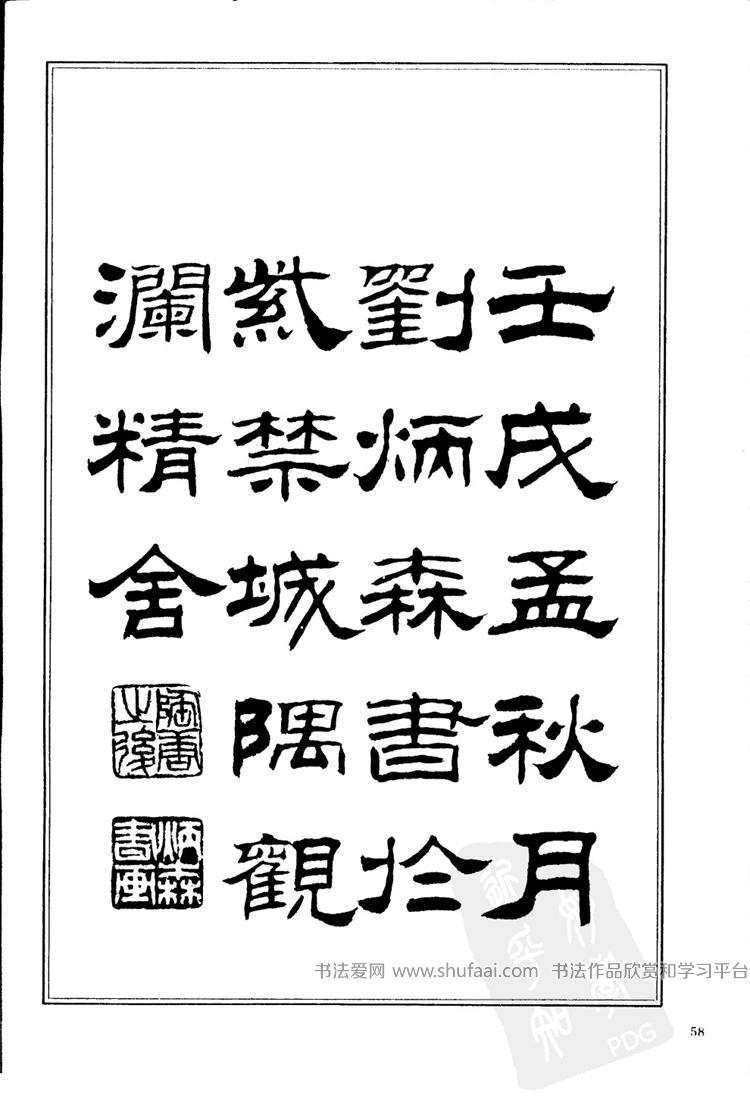 壬戌孟秋月
劉炳森書於
紫禁城隅觀
瀾精舍
陶唐之後
炳森書画
书法爱网 www.shufaai.com 书法作品欣赏和学习平台
PDG
58